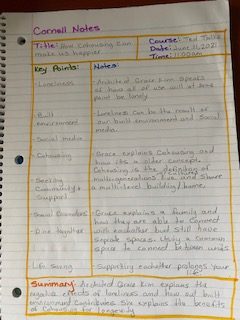 Cornell Notes
Title: How Cohousing can make us happier
Course: Ted Talks
Date: June 11, 2021
Time: 11:00am
Key Points:
Notes:
- Loneliness
- Architect Grace Kim Speaks of how all of use will at some point be lonely.
- Built environment
- Social media
- Loneliness can be the result of our built environment and Social media.
- Cohousing
- Seeking Community & Support
- Grace explains Cohousing and how its a older concept. Cohousing is the definition of multigenerations & cultures live and share a multi-level building/home.
- Social Connectors
- Dine together
- Grace explains a family and how they are able to connect with eachother but still have seperate spaces. Using a common space to connect between units
- Life Saving
- Supporting eachother prolongs your life
Summary: Architect Grace Kim explains the negative effects of loneliness and how out built environment contributes. She explains the benefits of Cohousing for longevity